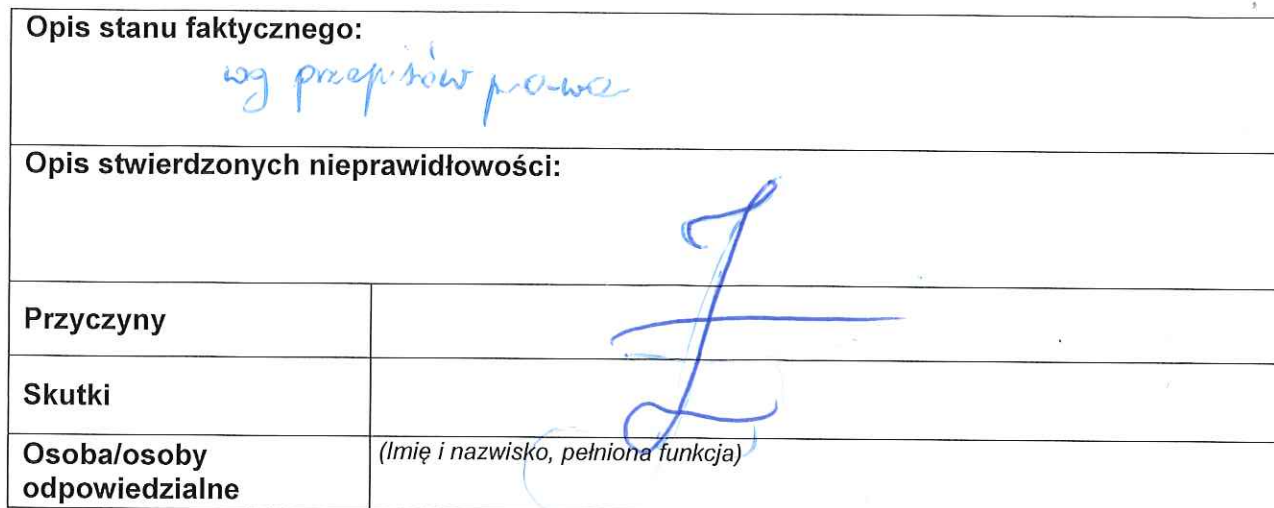 Opis stanu faktycznego:
wg przepisów prawa
Opis stwierdzonych nieprawidłowości:
Przyczyny
Skutki
Osoba/osoby
odpowiedzialne
(Imię i nazwisko, pełniona funkcja)